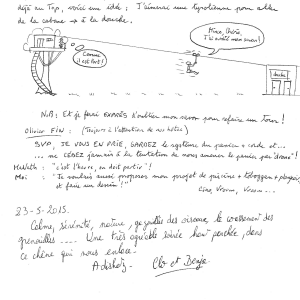 déjà au Top, voici un idée : J'aimerai une tyrolienne pour aller
de la cabane → à la douche.
Comme il est fort !
Mince, chérie,
j'ai oublié mon savon !
douche
N.B : Et je ferai EXPRÈS d'oublier mon savon pour refaire un tour !
(Toujours à l'attention de nos hôtes)
SVP, JE VOUS EN PRIE, GARDEZ le système du panier + corde et ...
... ne CÉDEZ jamais à la tentation de nous amener le panier par "drone" !
"c'est l'heure, on doit partir" !
Moi : "Je voudrais aussi proposer mon projet de piscine + toboggan + plongeoir,
et faire un dessin !"
Vroum, Vroum ...
23-5-2015.
Calme, sérénité, nature, gazouillis des oiseaux, le coassement des
grenouilles .... Une très agréable soirée haut perchée, dans
ce chêne qui nous enlace.
Adishatz. Clo et